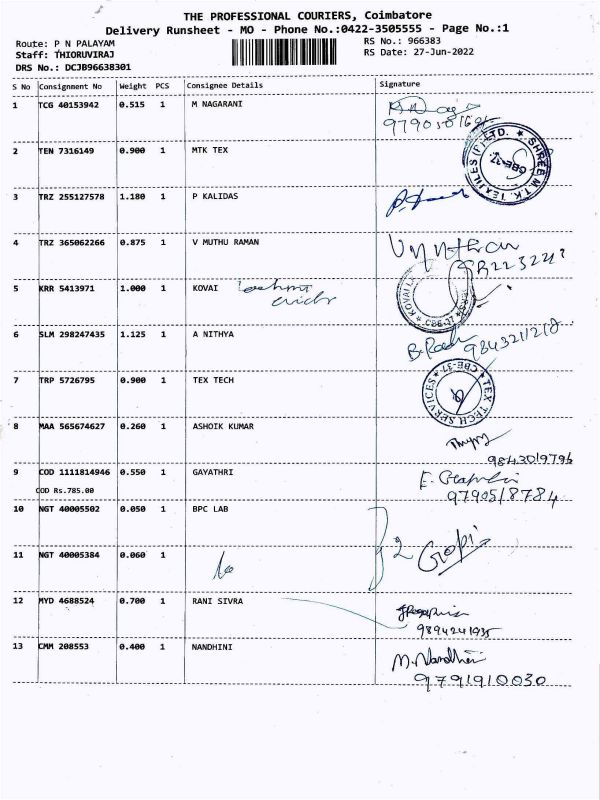 THE PROFESSIONAL COURIERS, Coimbatore
Delivery Runsheet - MO - Phone No.:0422-3505555 - Page No.:1
Route: P N PALAYAM
Staff: THIORUVIRAJ
DRS No.: DCJB96638301
RS No.: 966383
RS Date: 27-Jun-2022
S No Consignment No Weight PCS Consignee Details Signature
1 TCG 40153942 0.515 1 M NAGARANI
2 TEN 7316149 0.900 1 MTK TEX SHREE M.T.K. TEXTILES (P) LTD. CBE-37.
3 TRZ 255127578 1.180 1 P KALIDAS
4 TRZ 365062266 0.875 1 V MUTHU RAMAN
5 KRR 5413971 1.000 1 KOVAI CBE-37
6 SLM 298247435 1.125 1 A NITHYA 9843211218
7 TRP 5726795 0.900 1 TEX TECH TEX TECH SERVICES CBE-37
8 MAA 565674627 0.260 1 ASHOIK KUMAR
9843019796
9 COD 1111814946 0.550 1 GAYATHRI
COD Rs.785.00 9790518784
10 NGT 40005502 0.050 1 BPC LAB
2 Gopi
11 NGT 40005384 0.060 1
12 MYD 4688524 0.700 1 RANI SIVRA
9894241935
13 CMM 208553 0.400 1 NANDHINI M. Nandhini
9791910030